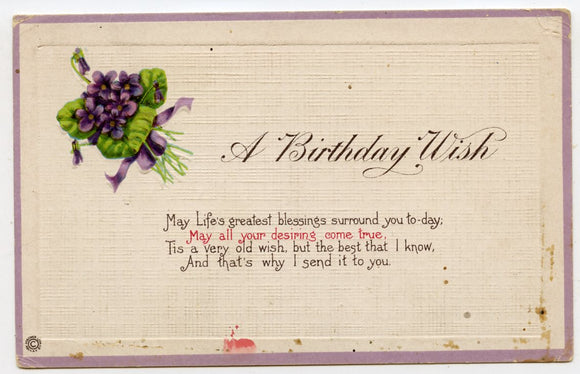 A Birthday Wish
May Life's greatest blessings surround you to-day;
May all your desiring come true,
Tis a very old wish, but the best that I know,
And that's why I send it to you.